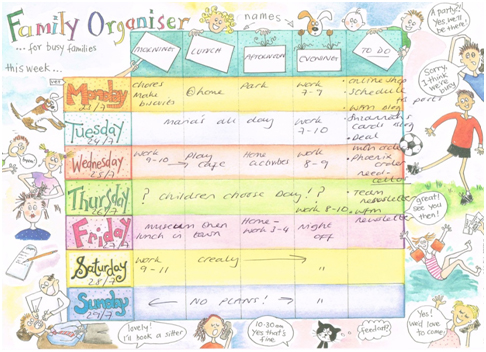 Family Organiser
...for busy families
this week...
names
MORNINGS
LUNCH
AFTERNOON
EVENINGS
TO DO
A party?!
Yes, we'll
be there!
Sorry,
I think
we're
busy
Monday
chores
make
biscuits
@ home
Park
work
7-9
online shop
schedule
posts
Tuesday
24/7
mama's all day
work
7-10
cards
Wednesday
25/7
work
9-10
Play
cafe
Home
activities
work
8-9
Phoenix
order
Thursday
26/7
? children choose Day! ?
work 8-10
Team
newsletter
Friday
museum
lunch in town
Home -
work 3-4
Night
off
newsletter
great!
see you
then!
Saturday
28/7
work
9-11
"
Sunday
29/7
NO PLANS!
"
lovely!
I'll book a sitter
10:30am
Yes that's
fine
feeding?
Yes!
We'd love
to come